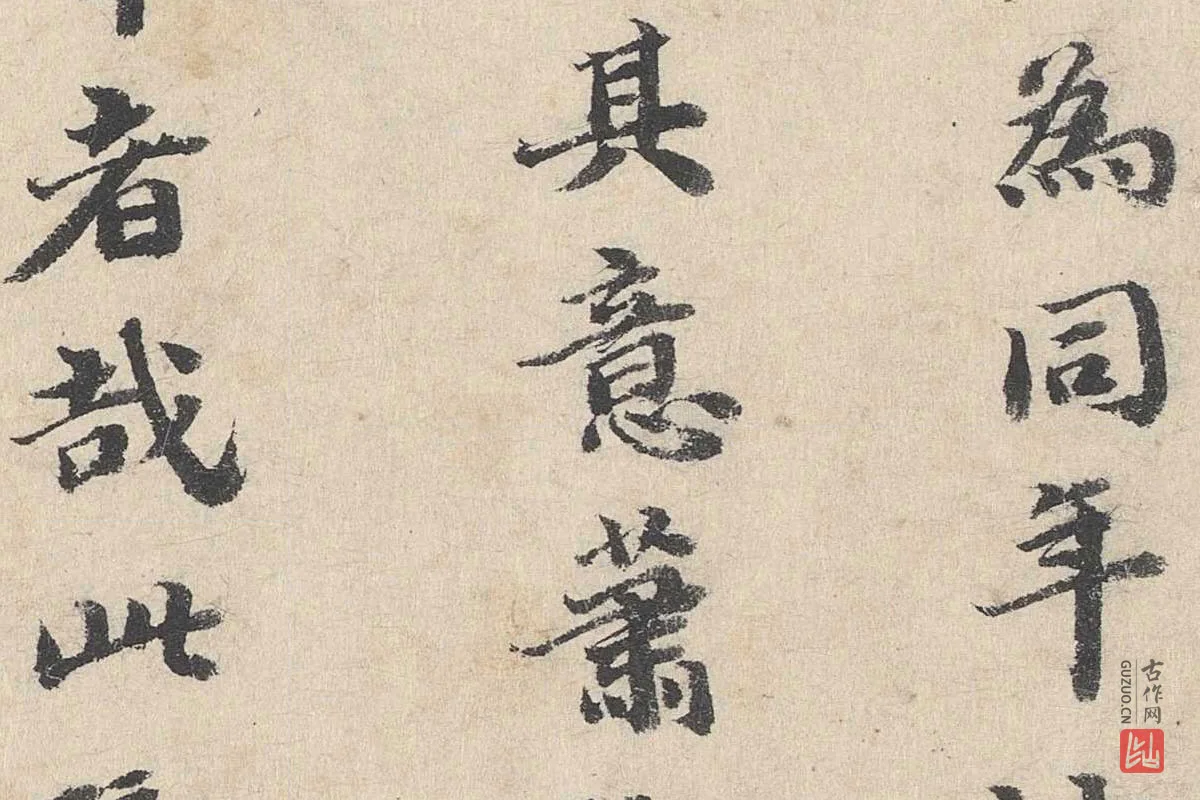 為同年
其意蕭
者哉此
古作网
GUZUO.CN